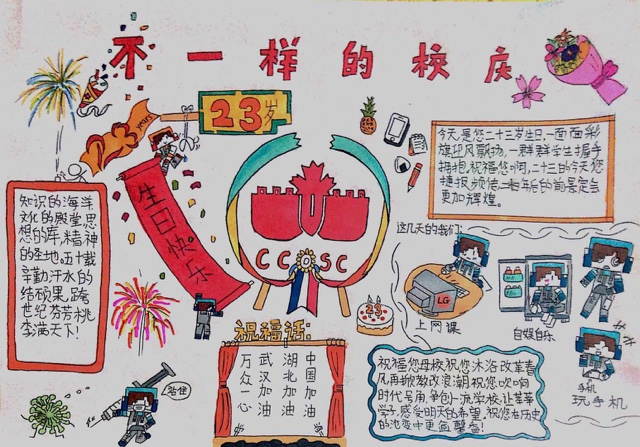 不一样的校庆
23岁
years
生日快乐
CC SC
知识的海洋
文化的殿堂思
想的库,精神
的圣地,五十载
辛勤汗水的
结硕果,跨
世纪芬芳桃
李满天下!
今天,是您二十三岁生日,一面面彩
旗迎风飘扬,一群群学生握手
拥抱,祝福您啊,二十三的今天您
捷报频传,
更加辉煌。
这几天的我们:
LG
上网课
自娱自乐
手机
玩手机
23
祝福语:
中国加油
湖北加油
武汉加油
万众一心
站住
祝福您母校,祝您沐浴改革春
风再掀教改浪潮,祝您吹响
时代号角,争创一流学校,让莘莘
学子感受明天的希望,祝您在历史
的沧桑中更加馨香!